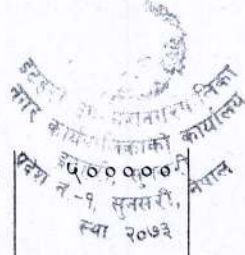 इटहरी
नगर कार्यपालिकाको कार्यालय
५०००००
प्रदेश नं.-१, सुनसरी, नेपाल
स्था २०७३